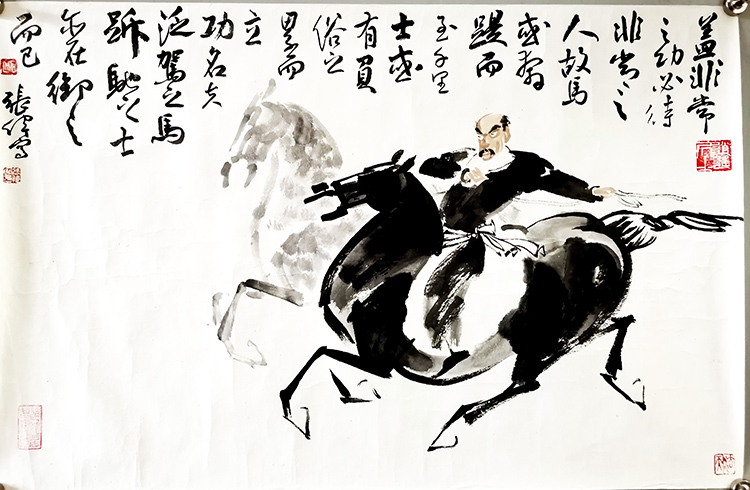 蓋非常
之功必待
非常之
人故馬
或奔
踶而
至千里
士或
有負
俗之
累而
立
功名夫
泛駕之馬
跅馳之士
亦在御之
而已
張寫